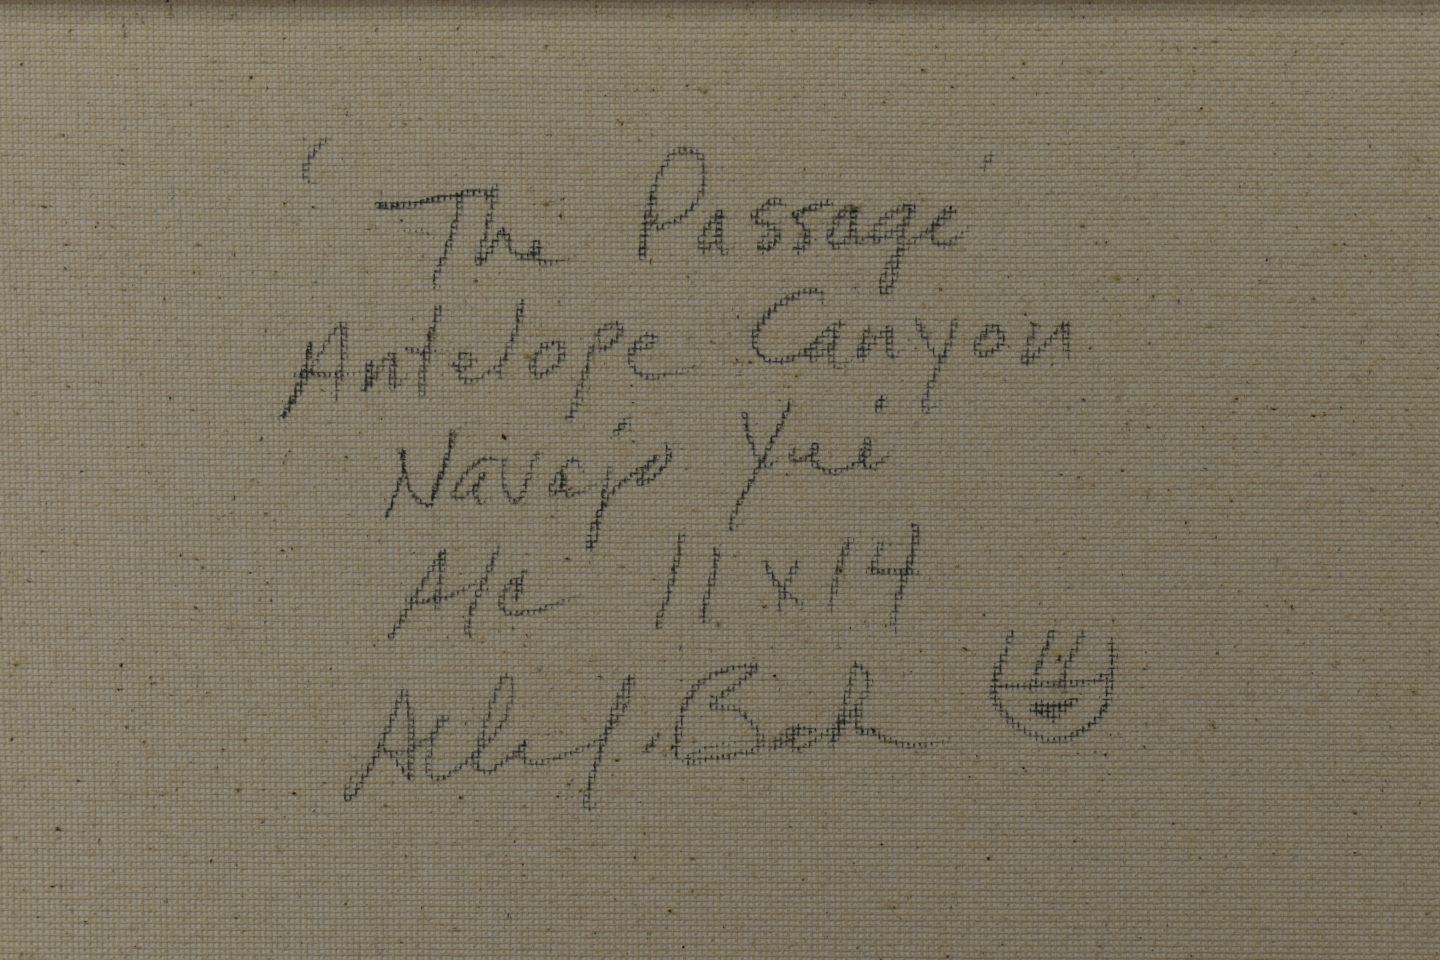 'The Passage'
Antelope Canyon
Navajo Yei
A/c 11x14